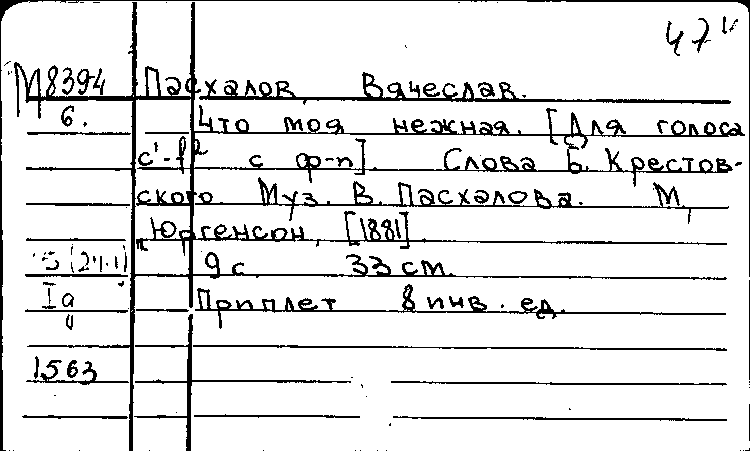 47
М8394 Пасхалов, Вячеслав.
6. Что моя нежная. [Для голоса
c'-f² с ф-п]. Слова Б. Крестов-
ского. Муз. В. Пасхалова. М,
"Юргенсон, [1881].
9 с. 33 см.
Iа Приплет 8 инв. ед.
1563